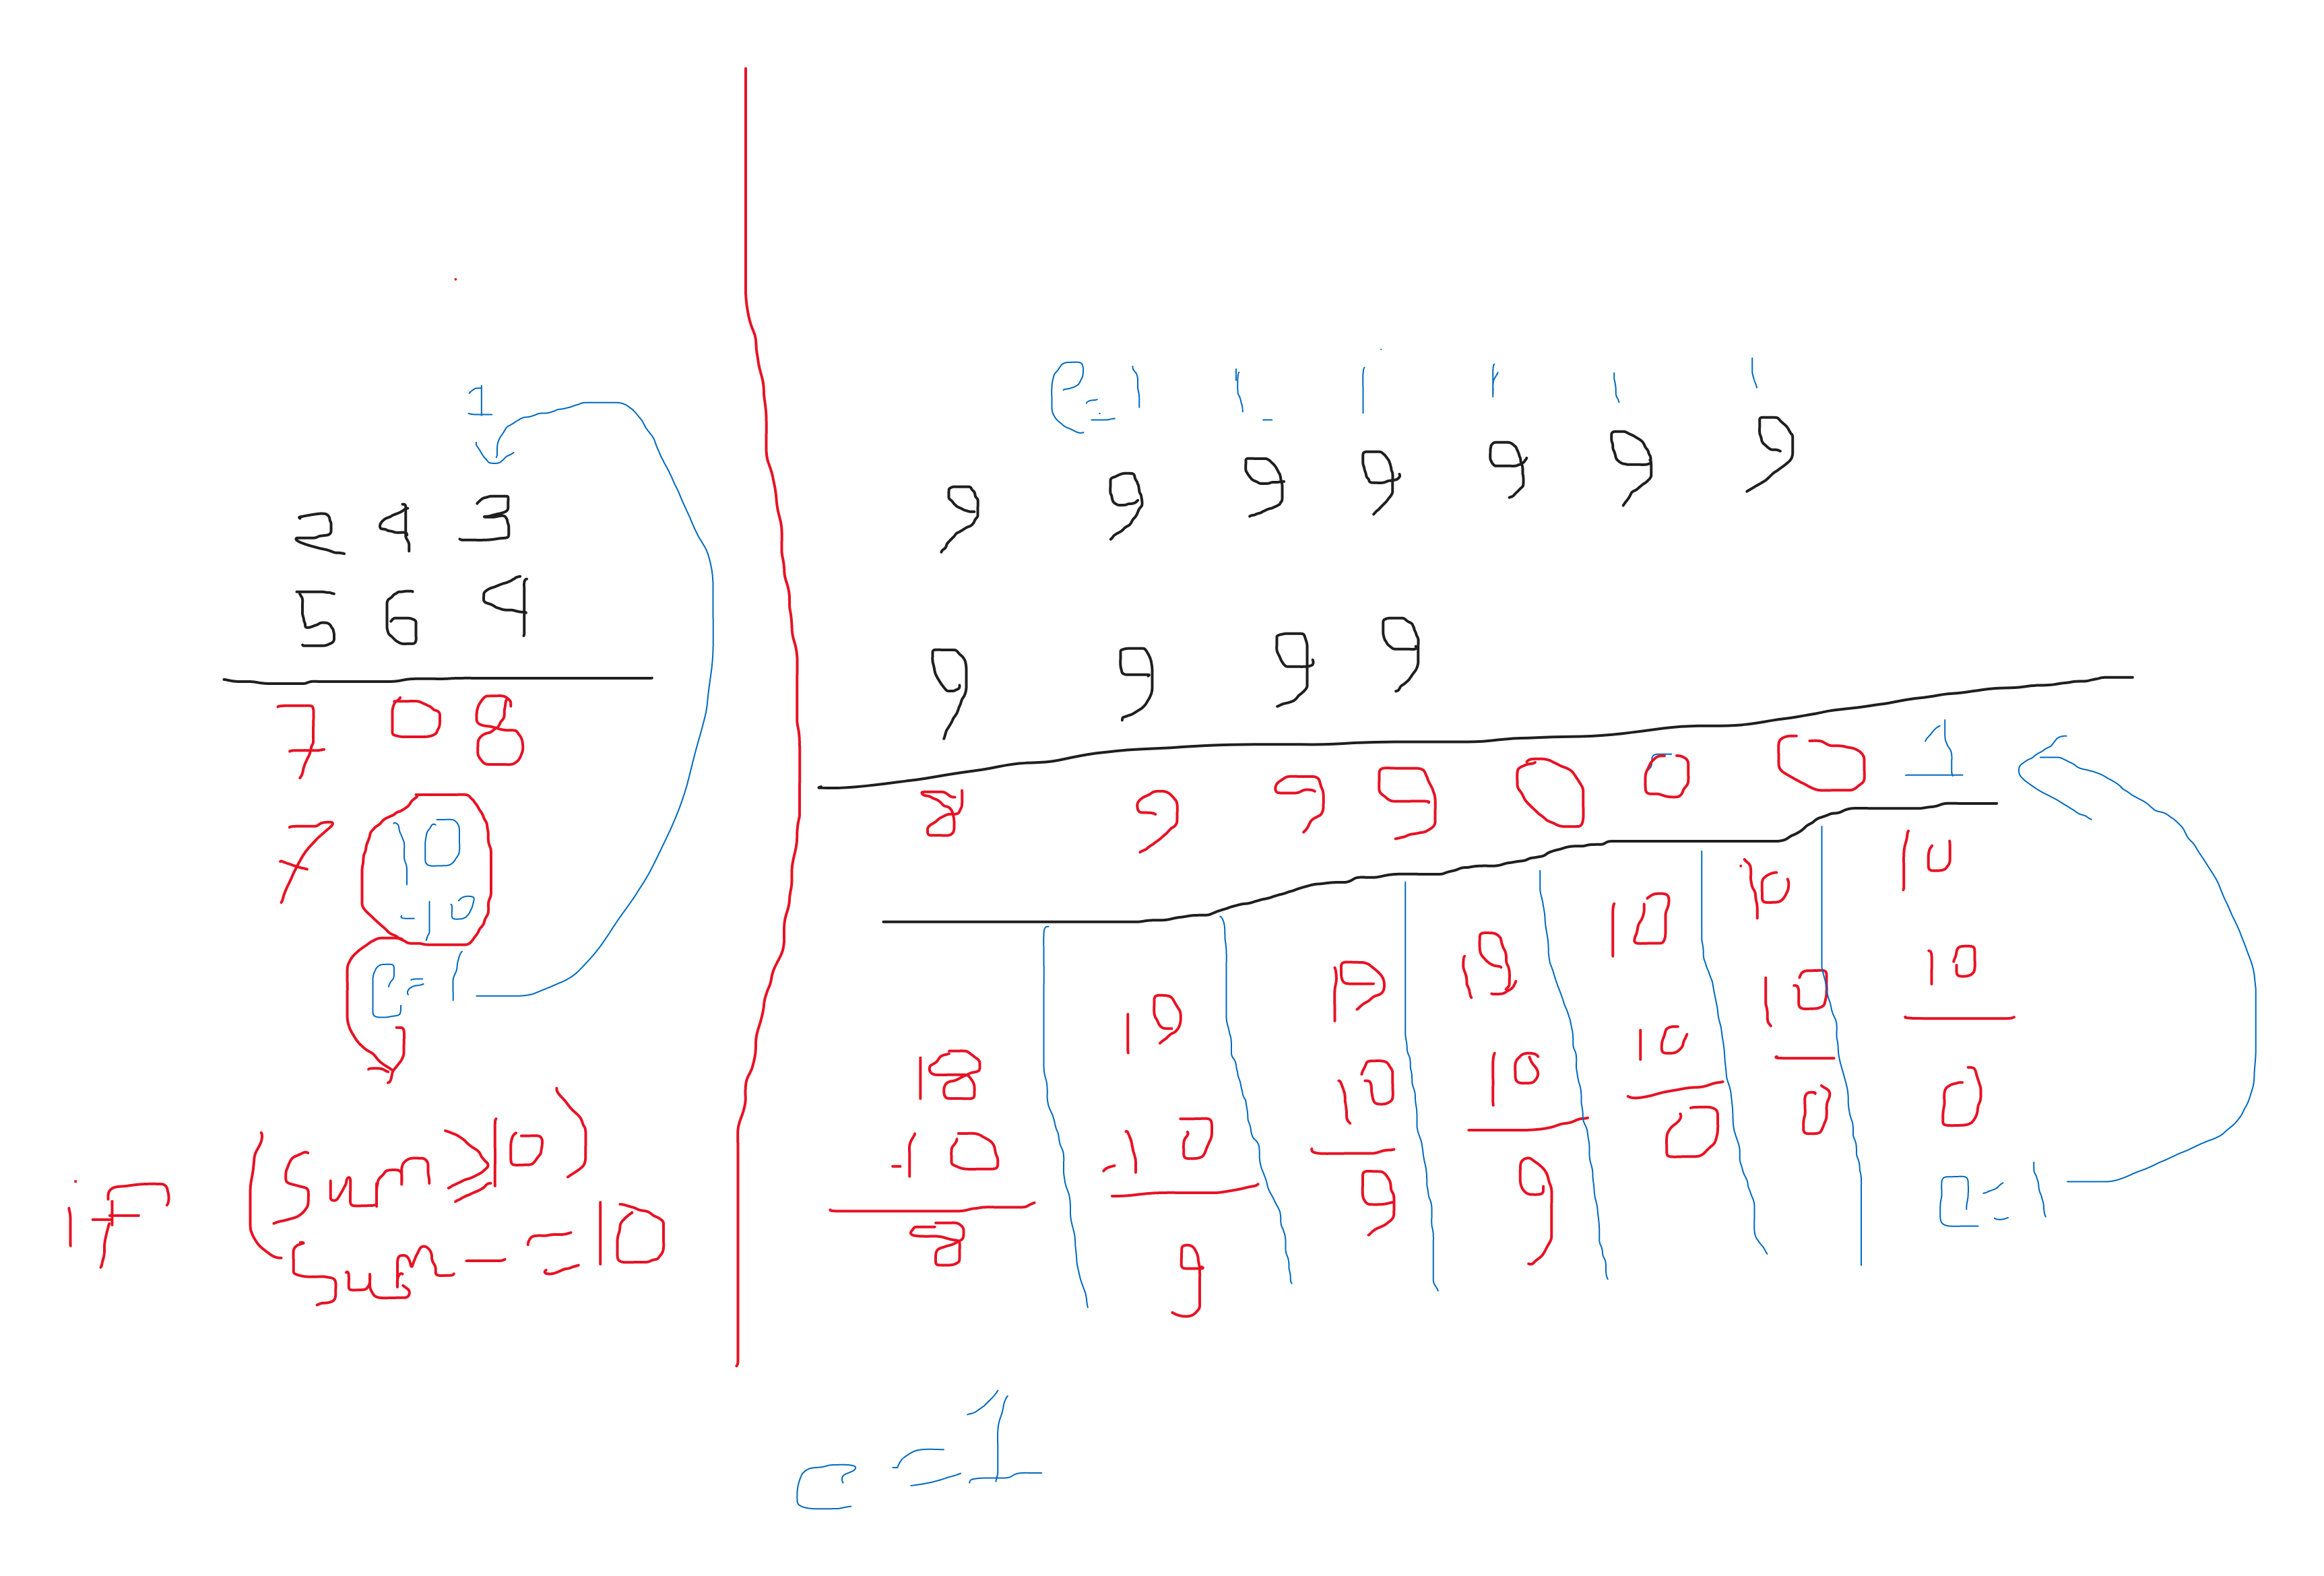 1
2 4 3
5 6 4
7 0 8
7 10
-10
c=1
if (sum >10)
sum-=10
c=1 1 1 1 1 1
9 9 9 9 9 9 9
9 9 9 9
8 9 9 9 0 0 0 1
18 19 19 19 10 10 10
-10 -10 10 10 10 10 10
8 9 9 9 0 0 0
c=1
c=1